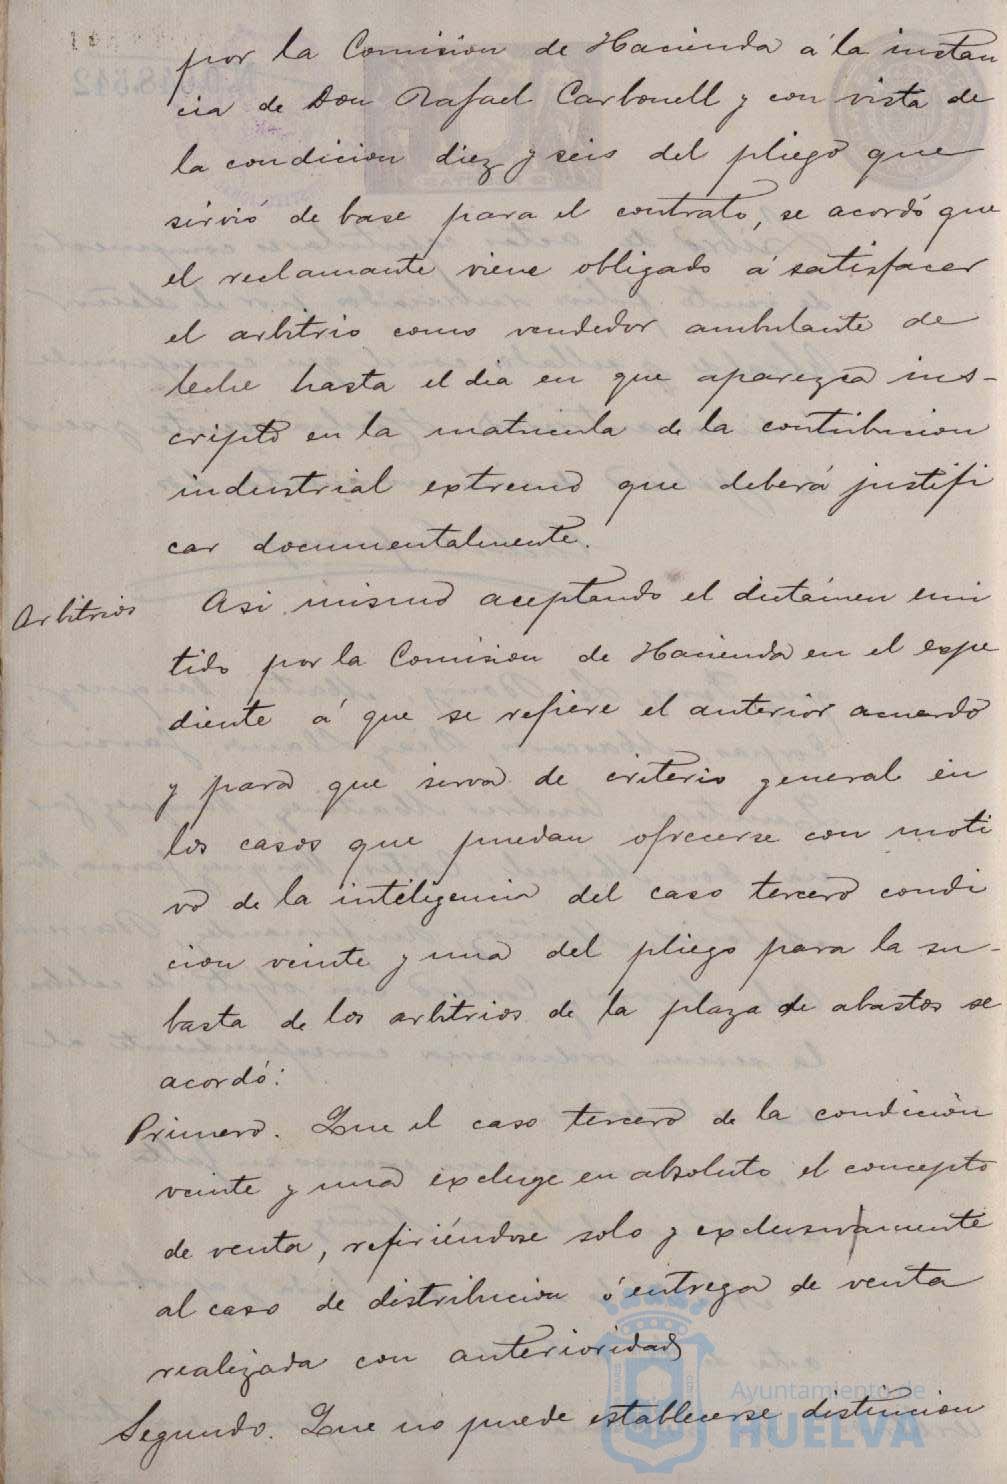 por la Comision de Hacienda á la instan
cia de Don Rafael Carbonell y con vista de
la condicion diez y seis del pliego que
sirvió de base para el contrato, se acordó que
el reclamante viene obligado á satisfacer
el arbitrio como vendedor ambulante de
leche hasta el dia en que aparezca ins-
cripto en la matricula de la contribucion
industrial extremo que deberá justifi
car documentalmente.
Arbitrios
Asi mismo aceptando el dictámen emi
tido por la Comision de Hacienda en el expe
diente á que se refiere el anterior acuerdo
y para que sirva de criterio general en
los casos que puedan ofrecerse con moti
vo de la inteligencia del caso tercero condi
cion veinte y una del pliego para la su-
basta de los arbitrios de la plaza de abastos se
acordó:
Primero. Que el caso tercero de la condición
veinte y una excluye en absoluto el concepto
de venta, refiriéndose solo y exclusivamente
al caso de distribucion ó entrega de venta
realizada con anterioridad
Segundo. Que no puede establecerse distincion
Ayuntamiento de
HUELVA